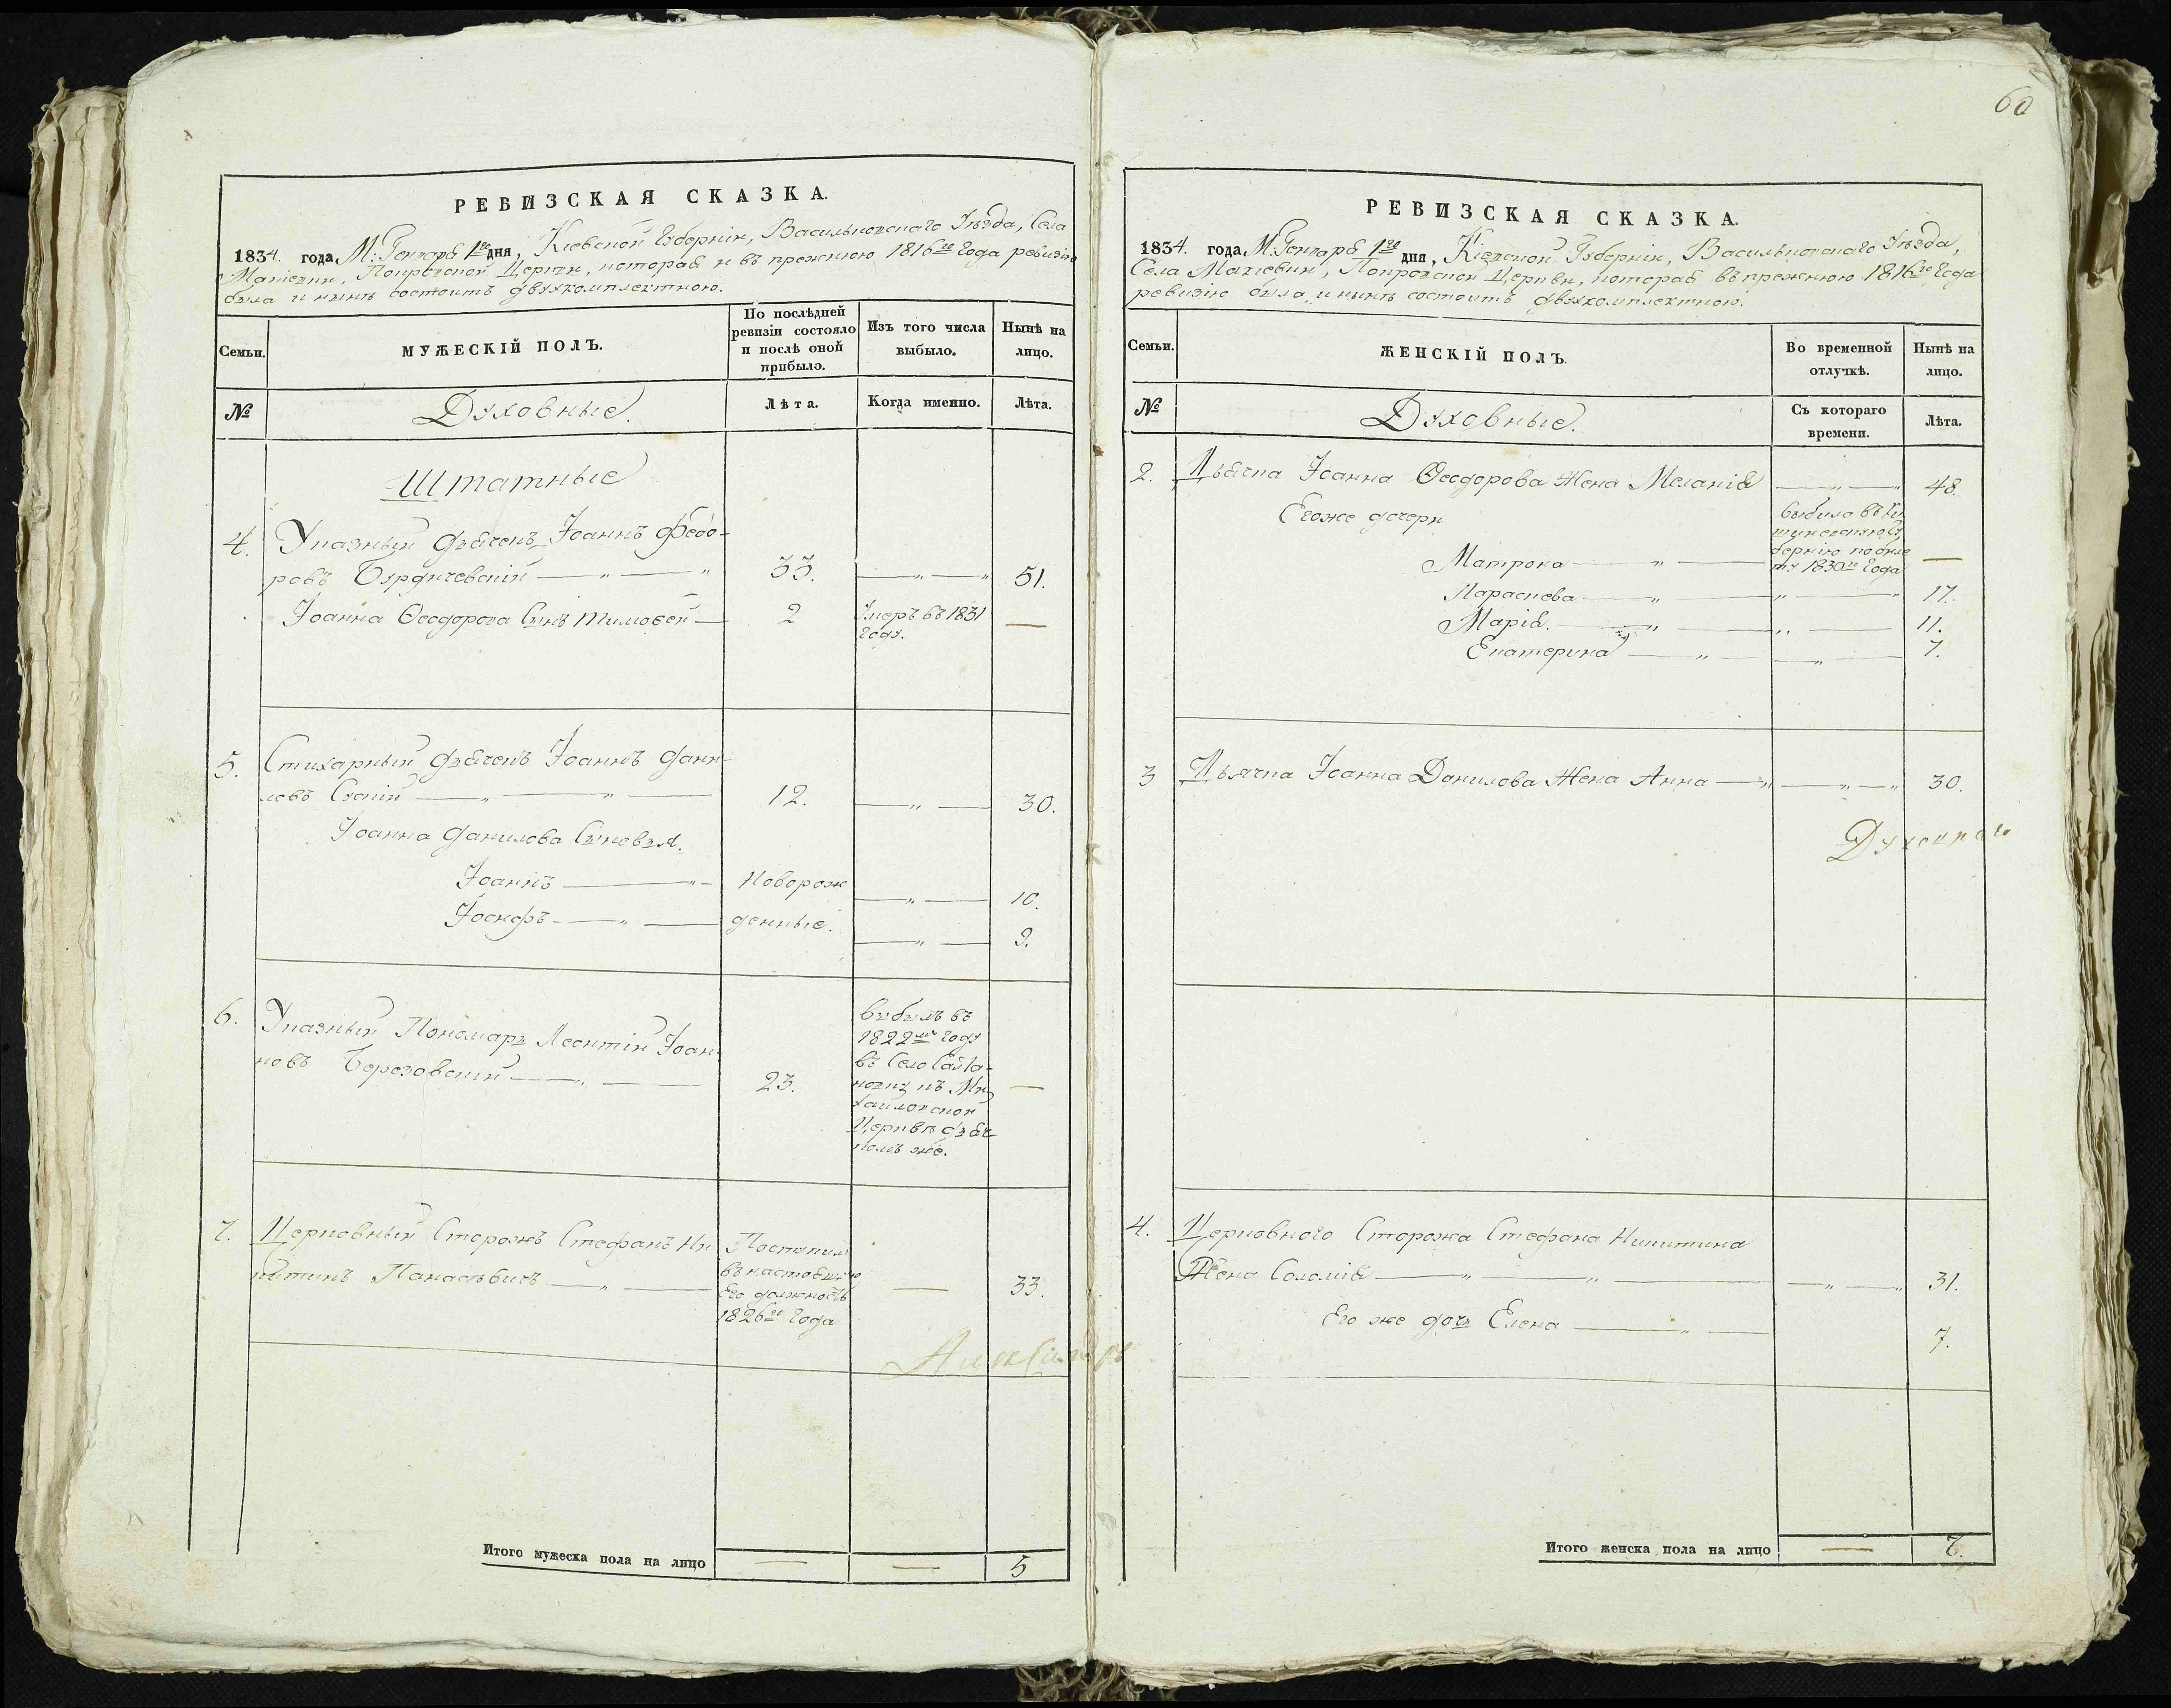 60
РЕВИЗСКАЯ СКАЗКА.
1834. года, М: Генваря 1го дня, Кіевской Губерніи, Васильковскаго Уѣзда, Села
Покровской Церкви, которая и въ прежнюю 1816го Года ревизію
была и нынѣ состоитъ двухкомплектною.
Семьи.
МУЖЕСКІЙ ПОЛЪ.
По послѣдней ревизіи состояло и послѣ оной прибыло.
Изъ того числа выбыло.
Нынѣ на лицо.
№
Духовные.
Лѣта.
Когда именно.
Лѣта.
Штатные
4. Указный дьячекъ Іоаннъ Федо-
ровъ Бердичевскій — „ — „ 33. — „ — „ 51.
Іоанна Ѳеодорова Сынъ Тимоѳей — 2 Умеръ въ 1831 —
Году.
5. Стихарный дьячекъ Іоаннъ Дани-
ловъ — „ — „ — 12. — „ — 30.
Іоанна Данилова Сыновья.
Іоаннъ — „ — Новорож — „ — 10.
Іосифъ — „ — денные. — „ — 9.
6. Указный Пономарь Леонтій Іоан-
новъ Березовскій — „ — 23. —
выбылъ въ
1822мъ Году
въ Село
къ Ми
хайловской
Церквѣ дьяч
комъ же.
7. Церковный Сторожъ Стефанъ Ни
китинъ Панасѣвичъ — „ — 33.
Поступил
въ настоящую
Его должность
1826го Года
—
Итого мужеска пола на лицо — — 5
РЕВИЗСКАЯ СКАЗКА.
1834. года, М: Генваря 1го дня, Кіевской Губерніи, Васильковскаго Уѣзда,
Села Покровской Церкви, которая въ прежнюю 1816го Года
ревизію была и нынѣ состоитъ двухкомплектною.
Семьи.
ЖЕНСКІЙ ПОЛЪ.
Во временной отлучкѣ.
Нынѣ на лицо.
№
Духовные.
Съ котораго времени.
Лѣта.
2. Дьячка Іоанна Ѳеодорова Жена Меланія — „ — 48.
Егоже дочери
Матрона — „ — —
выбила въ
бернію
1830го Года
Параскева — „ — „ — „ 17.
Марія. — „ — „ — 11.
Екатерина — „ — — „ — 7.
3 Дьячка Іоанна Данилова Жена Анна — „ — „ — „ 30.
4. Церковного Сторожа Стефана Никитина
Жена Соломія — „ — „ — — „ — „ 31.
Его же дочь Елена — „ — 7.
Итого женска пола на лицо — 7.